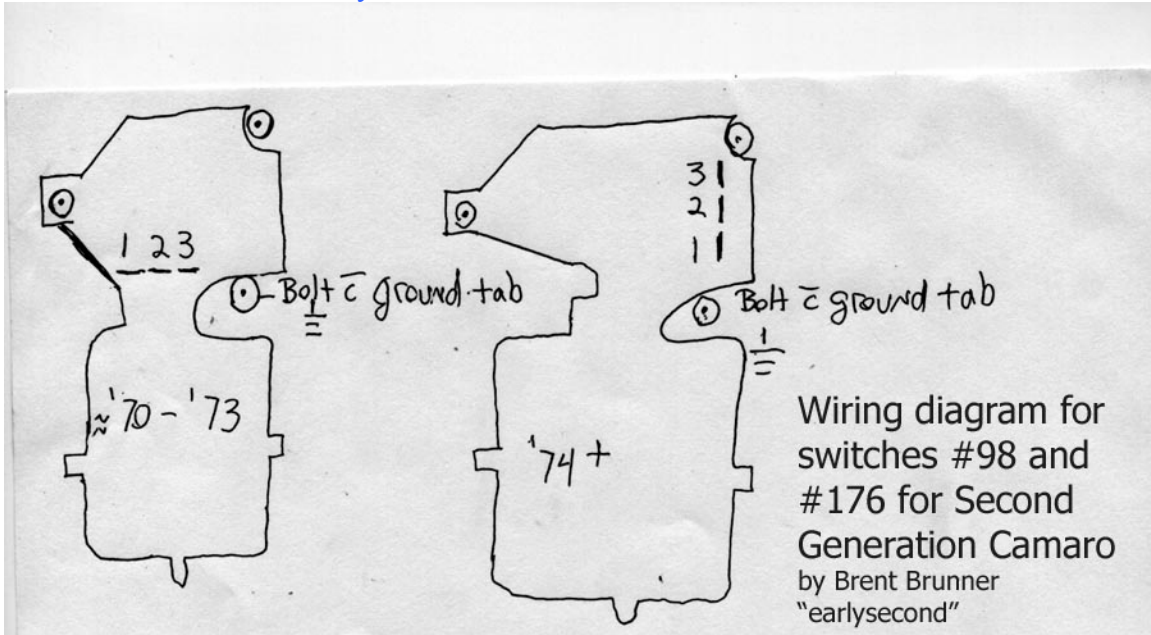 1 2 3
Bolt c̄ ground tab
≈ '70 - '73
3
2
1
Bolt c̄ ground tab
'74 +
Wiring diagram for
switches #98 and
#176 for Second
Generation Camaro
by Brent Brunner
"earlysecond"